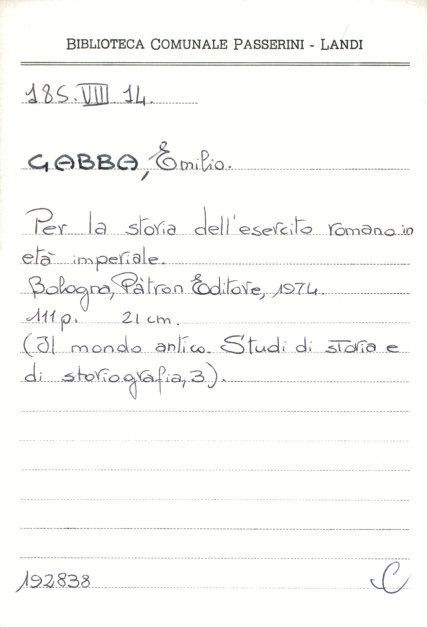 BIBLIOTECA COMUNALE PASSERINI - LANDI
185.VIII 14.
GABBA, Emilio.
Per la storia dell'esercito romano in
età imperiale.
Bologna, Pàtron Editore, 1974.
111 p. 21 cm.
(Il mondo antico. Studi di storia e
di storiografia, 3).
192838 C